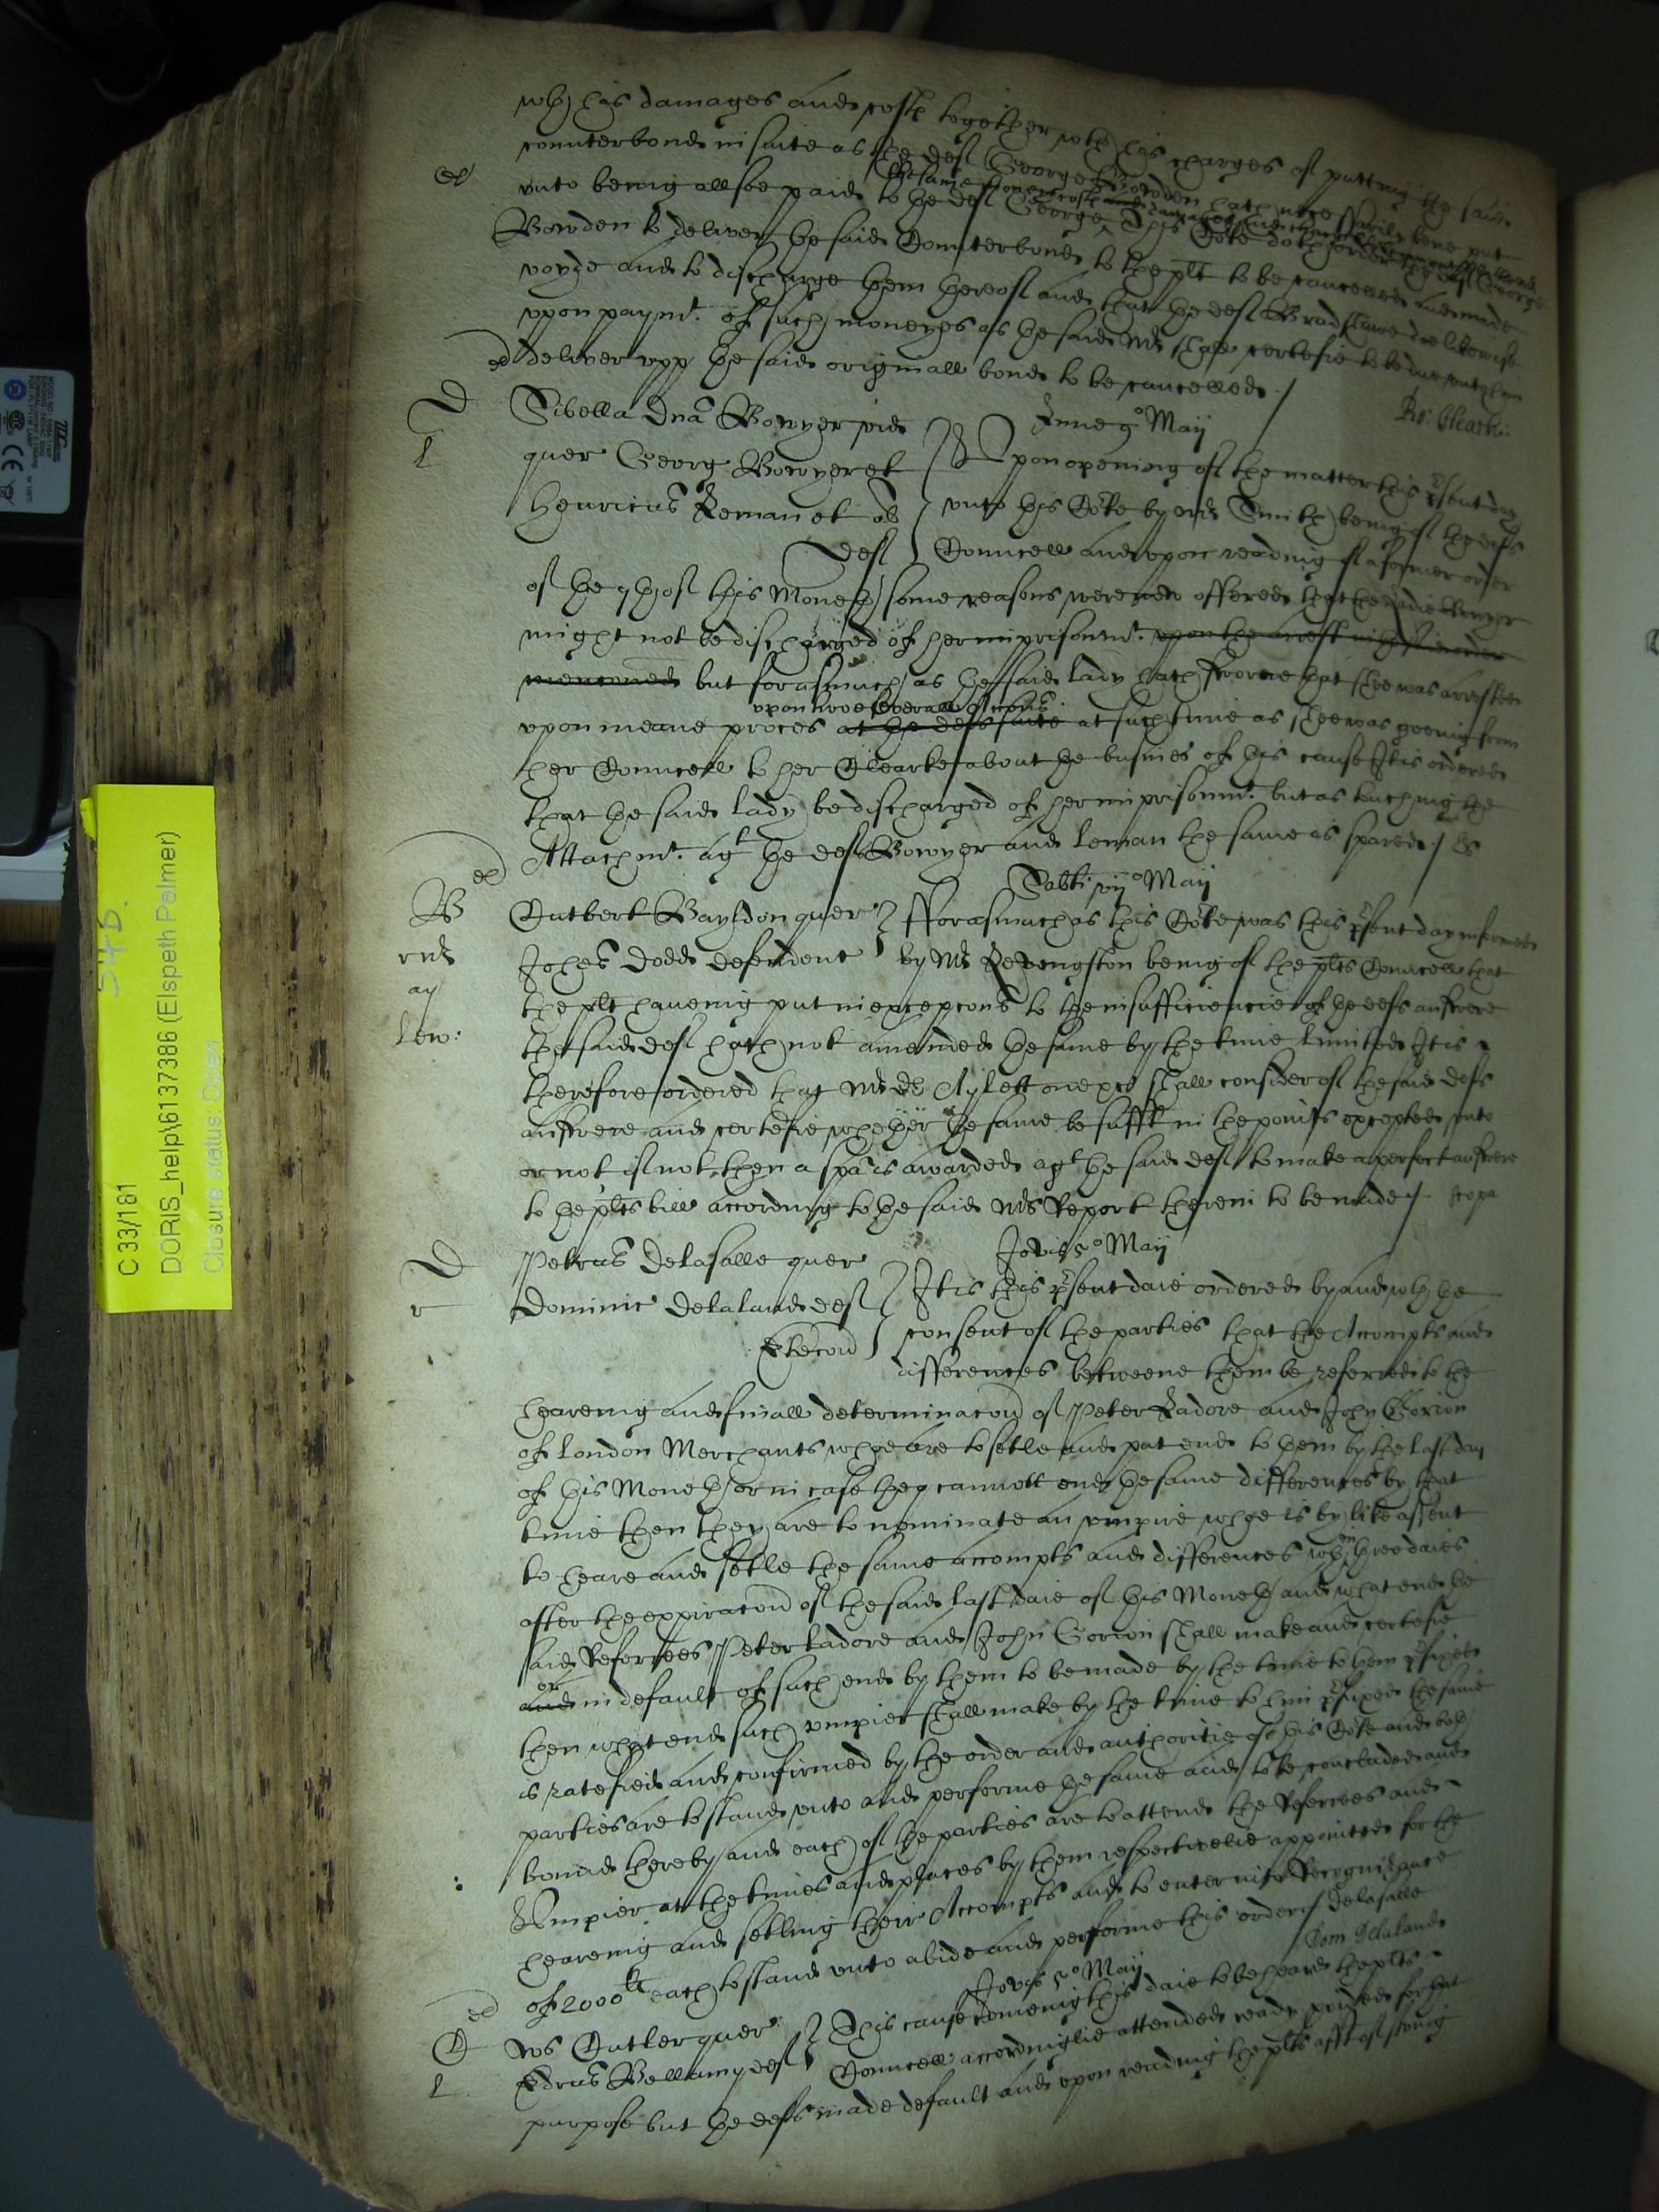 wth his damages and costs together wth his charges of putting the said
counterbond in suite as the deft George Bowden hath necessarily bene put
unto being allsoe paid to the deft George This Cote doth order the deft George
the same moneys costs damages and charges
Bowden to deliver the said Counterbond to the plt to be cancelled and made
voyde and to discharge them thereof and that the deft Bradshawe doe likewise
upon paymt. of such moneyes as the said Mr shall certefie to be due unto him
deliver upp the said originall bond to be cancelled /
Ro: Clearke
D
l
Sibella Dna Bowyer vid
quer Georg Bowyer et
Henricus Leman et al
deft
Lune 9o Maij
Upon opening of the matter this psent day
unto this Cote by mr Smith being of the defts
Councell and upon reading of a former order
of the 7th of this Moneth some reasons were now offered that the Ladie Bowyer
might not be discharged of her imprisonmt. upon the arrest in the said order
menconed but forasmuch as the said lady hath sworne that shee was arrested
upon two severall accons
upon meane proces at the defts suite at such time as shee was goeing from
her Councell to her Clearke about the busines of this cause It is ordered
that the said lady be discharged of her imprisonmt. but as touching the
Attachmt. agt the deft Bowyer and Leman the same is spared /
B
rnd
ay
lew:
Cutbert Bayldon quer
Johes Dodd defendent
Sabti vijo Maij
Fforasmuch as this Cote was this psent day informed
by Mr Levingston being of the plts Councell that
the plt haueing put in excepcons to the insufficiencie of the defts answere
the said deft hath not amended the same by the time limited It is
therefore ordered that Mr dr Aylett one &c shall consider of the said defts
answere and certefie whether the same be sufft in the points excepted unto
or not if not then a spa is awarded agt the said deft to make a perfect answere
to the plts bill according to the said Mrs Report therein to be made /
D
r
Petrus Delasalle quer
Dominic Delaland deft
Jovis 5o Maij
It is this psent daie ordered by and wth the
consent of the parties that the Accompts and
differences betweene them be referred to the
heareing and finall determinacon of Peter Ladore and John Gorion
of London Merchants whoe are to setle and put end to them by the last day
of this Moneth or in case they cannott end the same differences by that
time then they are to nominate an umpire whoe is by like assent
to heare and setle the same accompts and differences wthin three daies
after the expiracon of the said last daie of this Moneth and what end the
said Referrees Peter Ladore and John Gorion shall make and certefie
or
and in default of such end by them to be made by the time to them pfixed
then what end such umpier shall make by the time to him pfixed the same
is ratefied and confirmed by the order and authoritie of this Cote and both
parties are to stand unto and performe the same and to be concluded and
bound thereby and each of the parties are to attend the Referrees and
Umpier at the times and places by them respectivelie appointed for the
heareing and setling their Accompts and to enter into Recognizance
of 2000li each to stand unto abide and performe this order / Delasalle
Dom Delaland
C
l
Ws Cutler quer
Edrus Bellamy deft
Jovis 5o Maij
This cause comeing this daie to be heard the plts
Councell accordinglie attended ready prepared for that
purpose but the defts made default and upon reading the plts afft of serving
C 33/181
DORIS_help\6137386 (Elspeth Palmer)
Closure status: Open